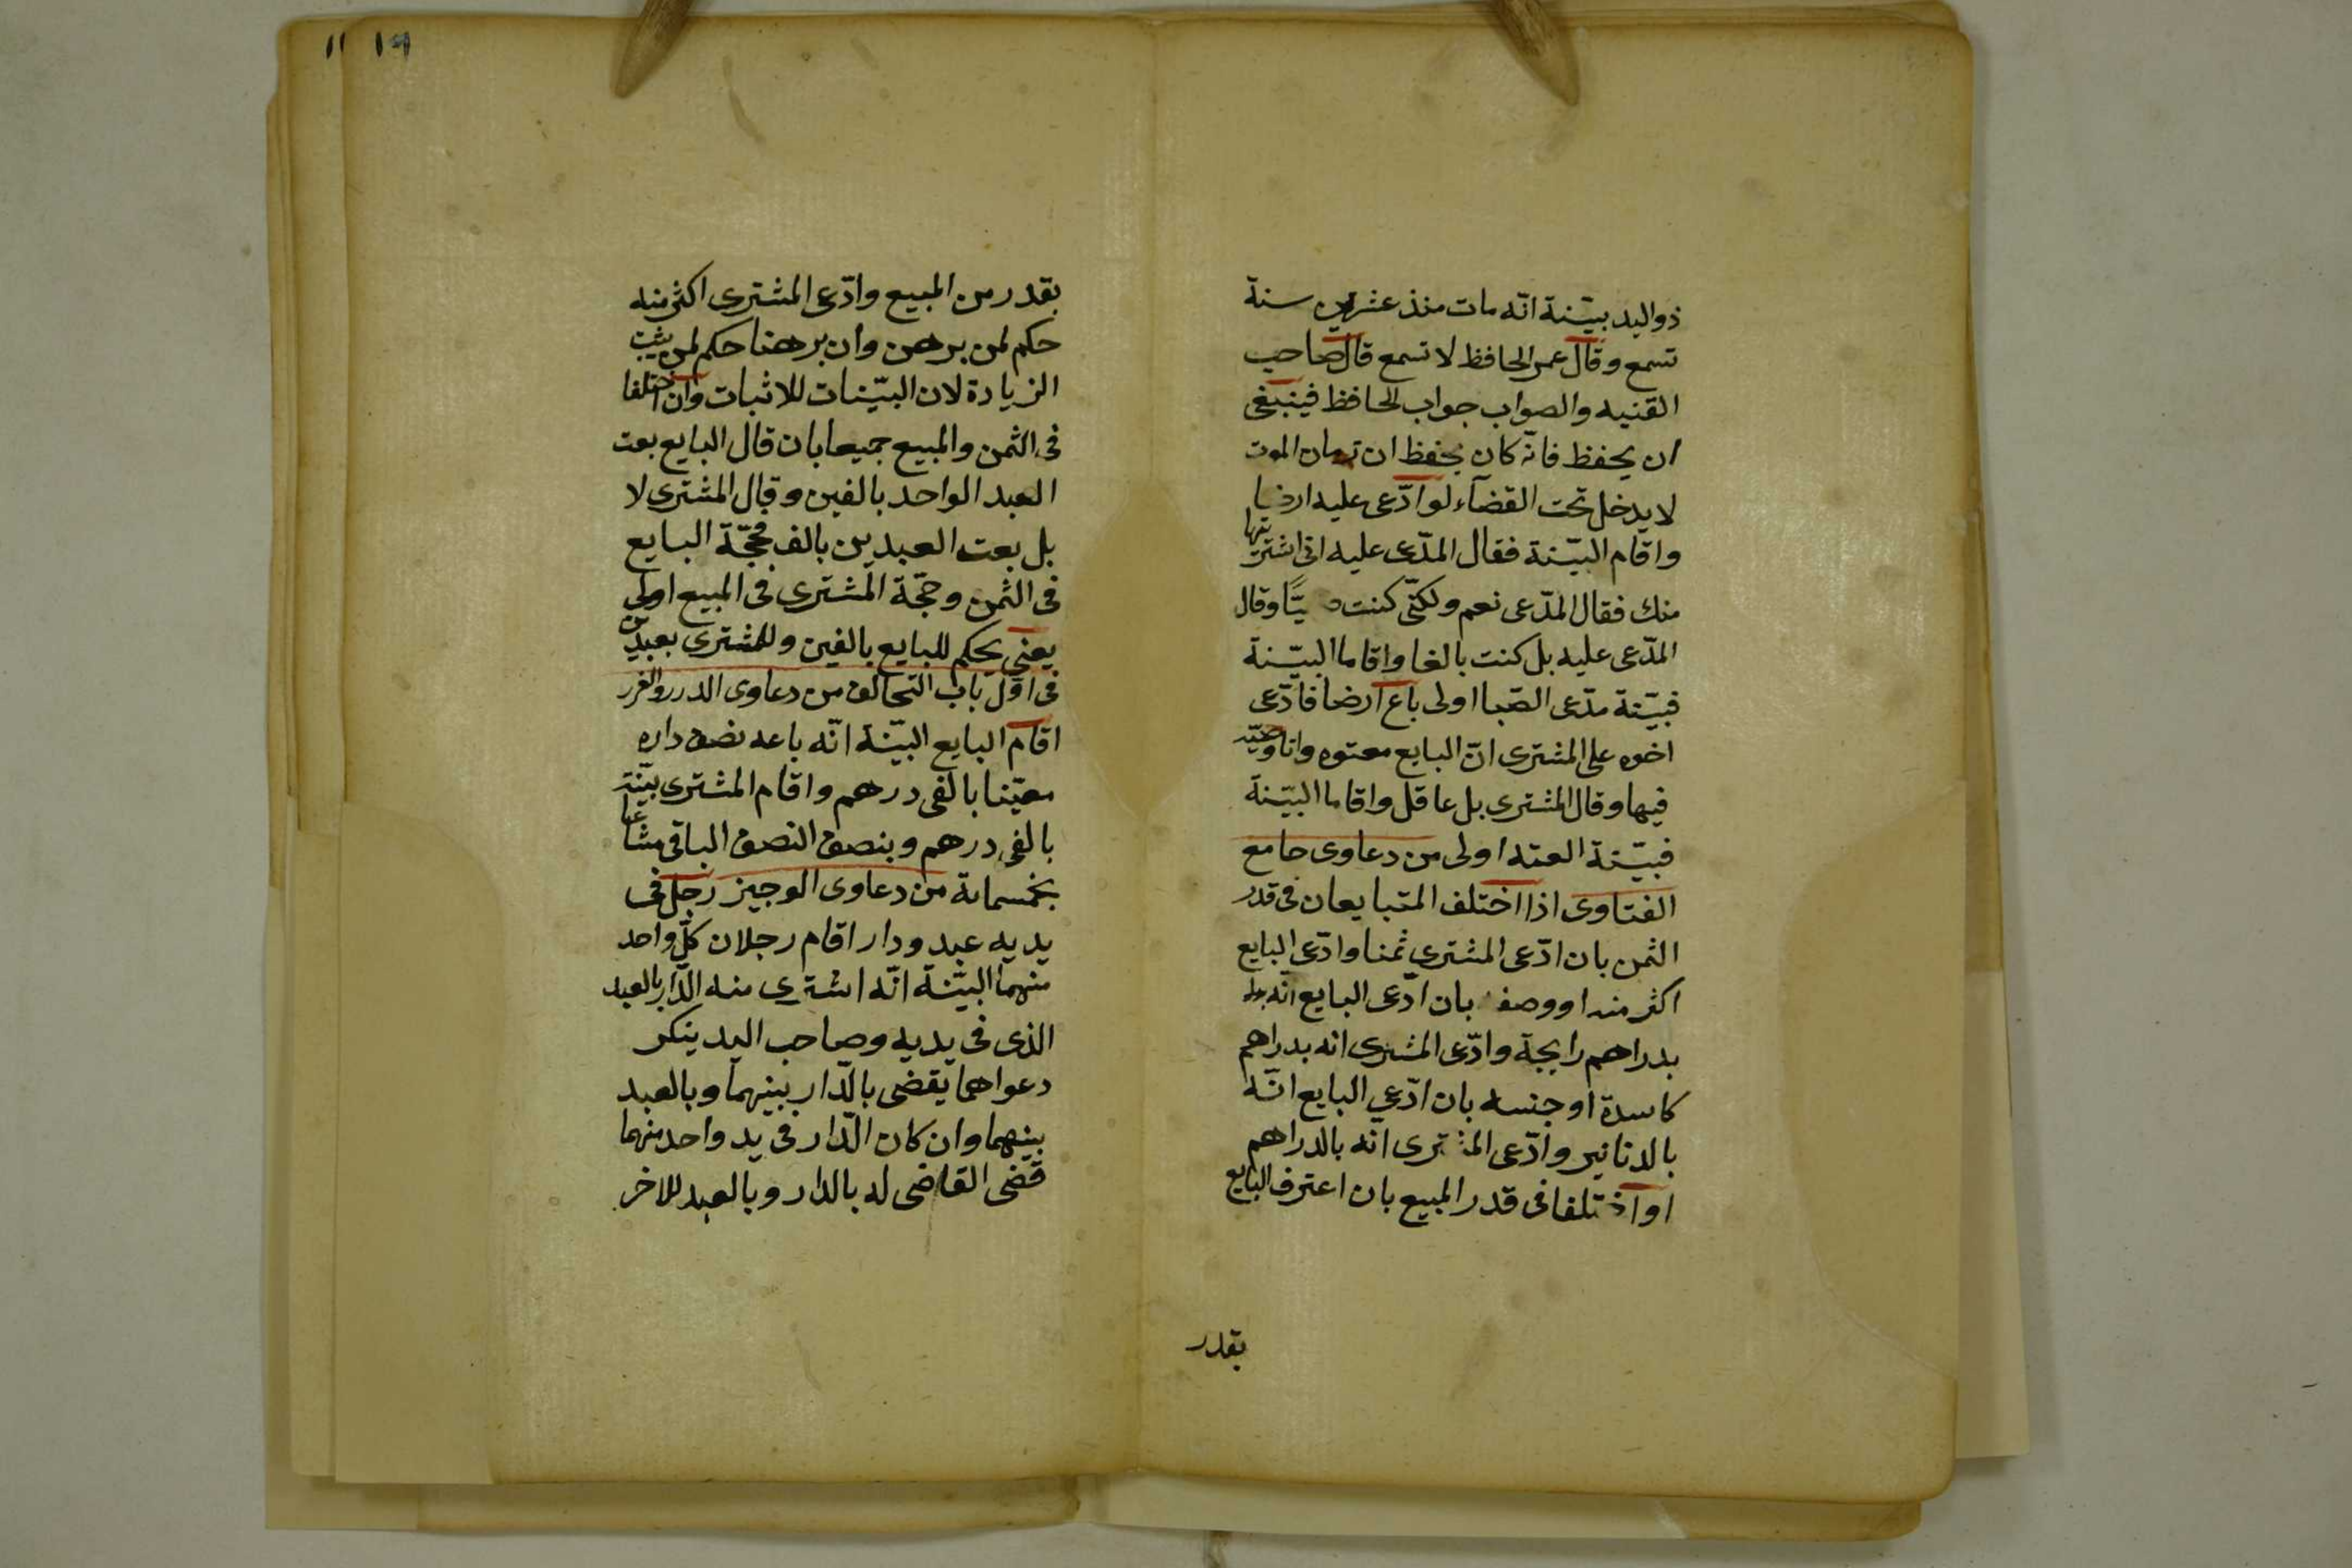 ذو اليد ببيّنة انّه مات منذ عشرين سنة
تسمع وقال عمر الحافظ لا تسمع قال صاحب
القنيه والصواب جواب الحافظ فينبغى
ان يحفظ فانّه كان يحفظ ان زمان الموت
لا يدخل تحت القضآء لو ادّعى عليه ارضا
واقام البيّنة فقال المدّعى عليه انى اشتريتها
منك فقال المدّعى نعم ولكنّى كنت صبيّا وقال
المدّعى عليه بل كنت بالغا واقاما البيّنة
فبيّنة مدّعى الصّبا اولى باع ارضا فادّعى
اخوه على المشترى انّ البايع معتوه وانا وصيّه
فيها وقال المشترى بل عاقل واقاما البيّنة
فبيّنة العته اولى من دعاوى جامع
الفتاوى اذا اختلف المتبايعان فى قدر
الثمن بان ادّعى المشترى ثمنا وادّعى البايع
اكثر منه او وصفه بان ادّعى البايع انّه
بدراهم رايجة وادّعى المشترى انه بدراهم
كاسدة او جنسه بان ادّعى البايع انّه
بالدنانير وادّعى المشترى انّه بالدراهم
او اختلفا فى قدر المبيع بان اعترف البايع
بقدر
١٩
١١
بقدر من المبيع وادّعى المشترى اكثر منه
حكم لمن برهن وان برهنا حكم لمن يثبت
الزيادة لان البيّنات للاثبات وان اختلفا
فى الثمن والمبيع جميعا بان قال البايع بعت
العبد الواحد بالفين وقال المشترى لا
بل بعت العبدين بالف فحجّة البايع
فى الثمن وحجّة المشترى فى المبيع اولى
يعنى يحكم للبايع بالفين وللمشترى بعبدين
فى اوّل باب التحالف من دعاوى الدرر والغرر
اقام البايع البيّنة انّه باعه نصف داره
معيّنا بالفى درهم واقام المشترى بيّنة
بالفى درهم وبنصف النصف الباقى مشاعا
بخمسماىة من دعاوى الوجيز رجل فى
يديه عبد ودار اقام رجلان كلّ واحد
منهما البيّنة انّه اشترى منه الدّار بالعبد
الذى فى يديه وصاحب اليد ينكر
دعواهما يقضى بالدّار بينهما وبالعبد
بينهما وان كان الدّار فى يد واحد منهما
قضى القاضى له بالدار وبالعبد للاخر